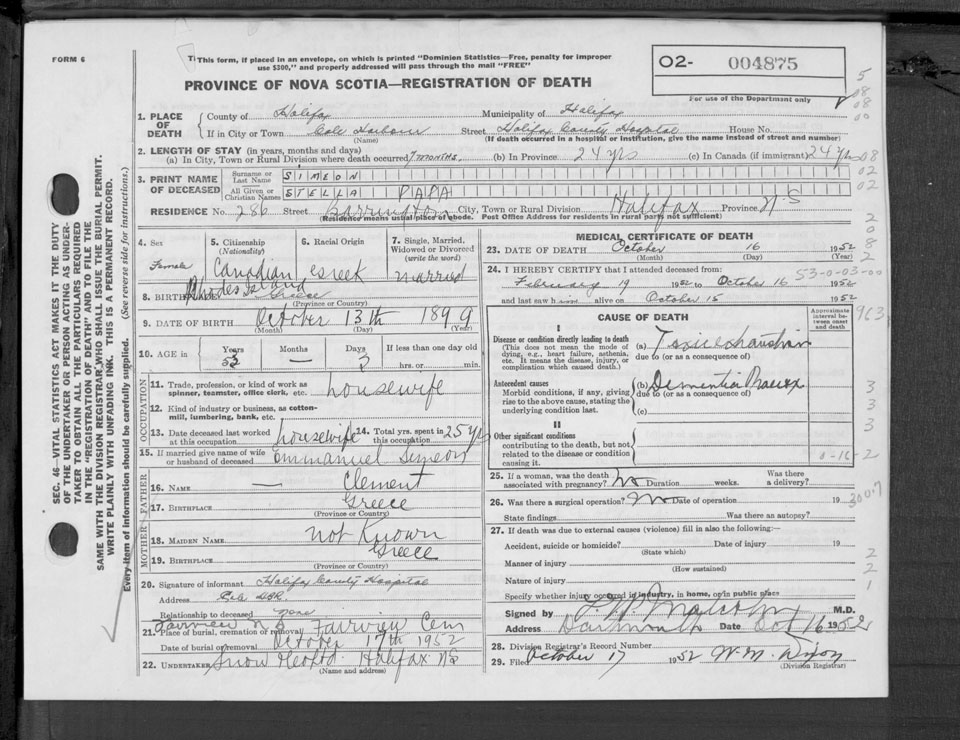 FORM 6
This form, if placed in an envelope, on which is printed "Dominion Statistics—Free, penalty for improper
use $300," and properly addressed will pass through the mail "FREE"
PROVINCE OF NOVA SCOTIA—REGISTRATION OF DEATH
O2- 004875
For use of the Department only
1. PLACE OF DEATH
County of Halifax Municipality of Halifax
If in City or Town Cole Harbour Street Halifax County Hospital House No.
(Name) (If death occurred in a hospital or institution, give the name instead of street and number)
2. LENGTH OF STAY (in years, months and days)
(a) In City, Town or Rural Division where death occurred 7 months. (b) In Province 24 yrs (c) In Canada (if immigrant) 24 yrs
3. PRINT NAME OF DECEASED
Surname or Last Name SIMEON
All Given or Christian Names STELLA PAPA
RESIDENCE No. 286 Street Barrington City, Town or Rural Division Halifax Province N-S
(Residence means usual place of abode. Post Office Address for residents in rural parts not sufficient)
4. Sex
Female
5. Citizenship
(Nationality)
Canadian
6. Racial Origin
Greek
7. Single, Married, Widowed or Divorced
(write the word)
married
8. BIRTHPLACE Rhodes Island
Greece
(Province or Country)
9. DATE OF BIRTH October 13th 1899
(Month) (Day) (Year)
10. AGE in Years 53 Months — Days 3 If less than one day old
hrs. or min.
OCCUPATION
11. Trade, profession, or kind of work as
spinner, teamster, office clerk, etc. housewife
12. Kind of industry or business, as cotton-
mill, lumbering, bank, etc.
13. Date deceased last worked
at this occupation housewife 14. Total yrs. spent in
this occupation 25 yrs
15. If married give name of wife
or husband of deceased Emmanuel Simeon
FATHER
16. NAME — Clement
17. BIRTHPLACE Greece
(Province or Country)
MOTHER
18. MAIDEN NAME not Known
19. BIRTHPLACE Greece
(Province or Country)
20. Signature of informant Halifax County Hospital
Address Cole HBR.
Relationship to deceased none
Fairview N.S. Fairview Cem
21. Place of burial, cremation or removal
Date of burial or removal October 17th 1952
22. UNDERTAKER Snow & Co Ltd. Halifax NS
(Name and address)
MEDICAL CERTIFICATE OF DEATH
23. DATE OF DEATH October 16 1952
(Month) (Day) (Year)
24. I HEREBY CERTIFY that I attended deceased from:
53-0-03-00
February 19 1952 to October 16 1952
and last saw him alive on October 15 1952
CAUSE OF DEATH
Approximate interval between onset and death
I
Disease or condition directly leading to death
(This does not mean the mode of dying, e.g., heart failure, asthenia, etc. It means the disease, injury, or complication which caused death.)
(a)
due to (or as a consequence of)
Antecedent causes
Morbid conditions, if any, giving rise to the above cause, stating the underlying condition last.
(b) Dementia Praecox
due to (or as a consequence of)
(c)
II
Other significant conditions
contributing to the death, but not related to the disease or condition causing it.
0-16-2
25. If a woman, was the death
associated with pregnancy? No Duration weeks. Was there
a delivery?
26. Was there a surgical operation? No Date of operation 19
State findings Was there an autopsy?
27. If death was due to external causes (violence) fill in also the following:—
Accident, suicide or homicide? Date of injury 19
(State which)
Manner of injury
(How sustained)
Nature of injury
Specify whether injury occurred in industry, in home, or in public place
Signed by T. W. Malcolm M.D.
Address Dartmouth Date Oct 16 1952
28. Division Registrar's Record Number
29. Filed October 17 1952 W. M. Dixon
(Division Registrar)
SEC. 46—VITAL STATISTICS ACT MAKES IT THE DUTY
OF THE UNDERTAKER OR PERSON ACTING AS UNDER-
TAKER TO OBTAIN ALL THE PARTICULARS REQUIRED
IN THE "REGISTRATION OF DEATH" AND TO FILE THE
SAME WITH THE DIVISION REGISTRAR, WHO SHALL ISSUE THE BURIAL PERMIT.
WRITE PLAINLY WITH UNFADING INK. THIS IS A PERMANENT RECORD.
Every item of information should be carefully supplied. (See reverse side for instructions.)